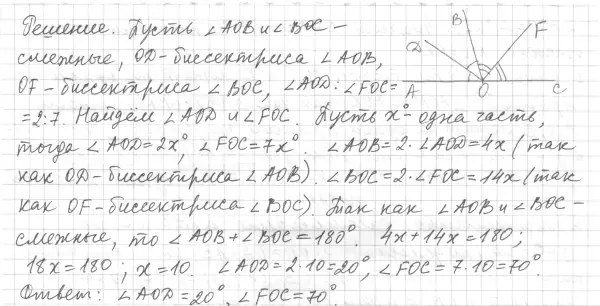 Решение. Пусть ∠AOB и ∠BOC –
смежные, OD – биссектриса ∠AOB,
OF – биссектриса ∠BOC, ∠AOD : ∠FOC =
= 2:7. Найдём ∠AOD и ∠FOC. Пусть x° – одна часть,
тогда ∠AOD = 2x°, ∠FOC = 7x°. ∠AOB = 2·∠AOD = 4x (так
как OD – биссектриса ∠AOB). ∠BOC = 2·∠FOC = 14x (так
как OF – биссектриса ∠BOC) Так как ∠AOB и ∠BOC –
смежные, то ∠AOB + ∠BOC = 180°. 4x + 14x = 180;
18x = 180; x = 10. ∠AOD = 2·10 = 20°, ∠FOC = 7·10 = 70°.
Ответ: ∠AOD = 20°, ∠FOC = 70°
B
F
D
A
O
C